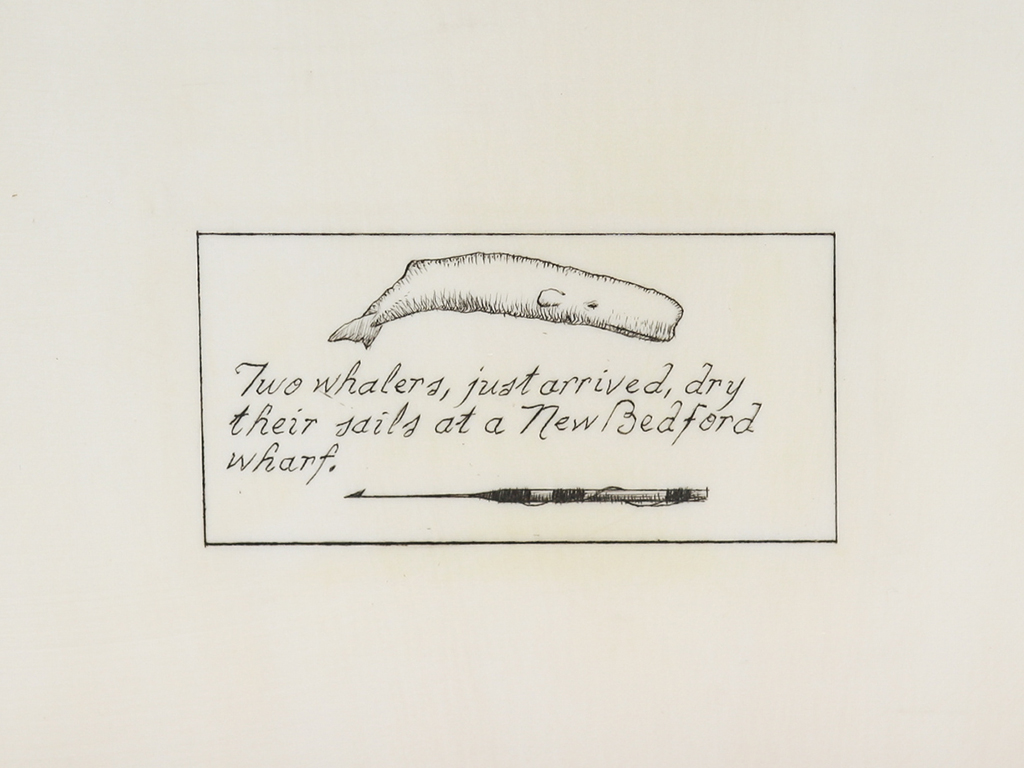 Two whalers, just arrived, dry
their sails at a New Bedford
wharf.